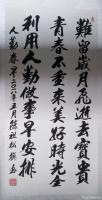 難留歲月飛逝去寶貴
青春不重來美好時光全
利用人勤做事早安排
人勤春早